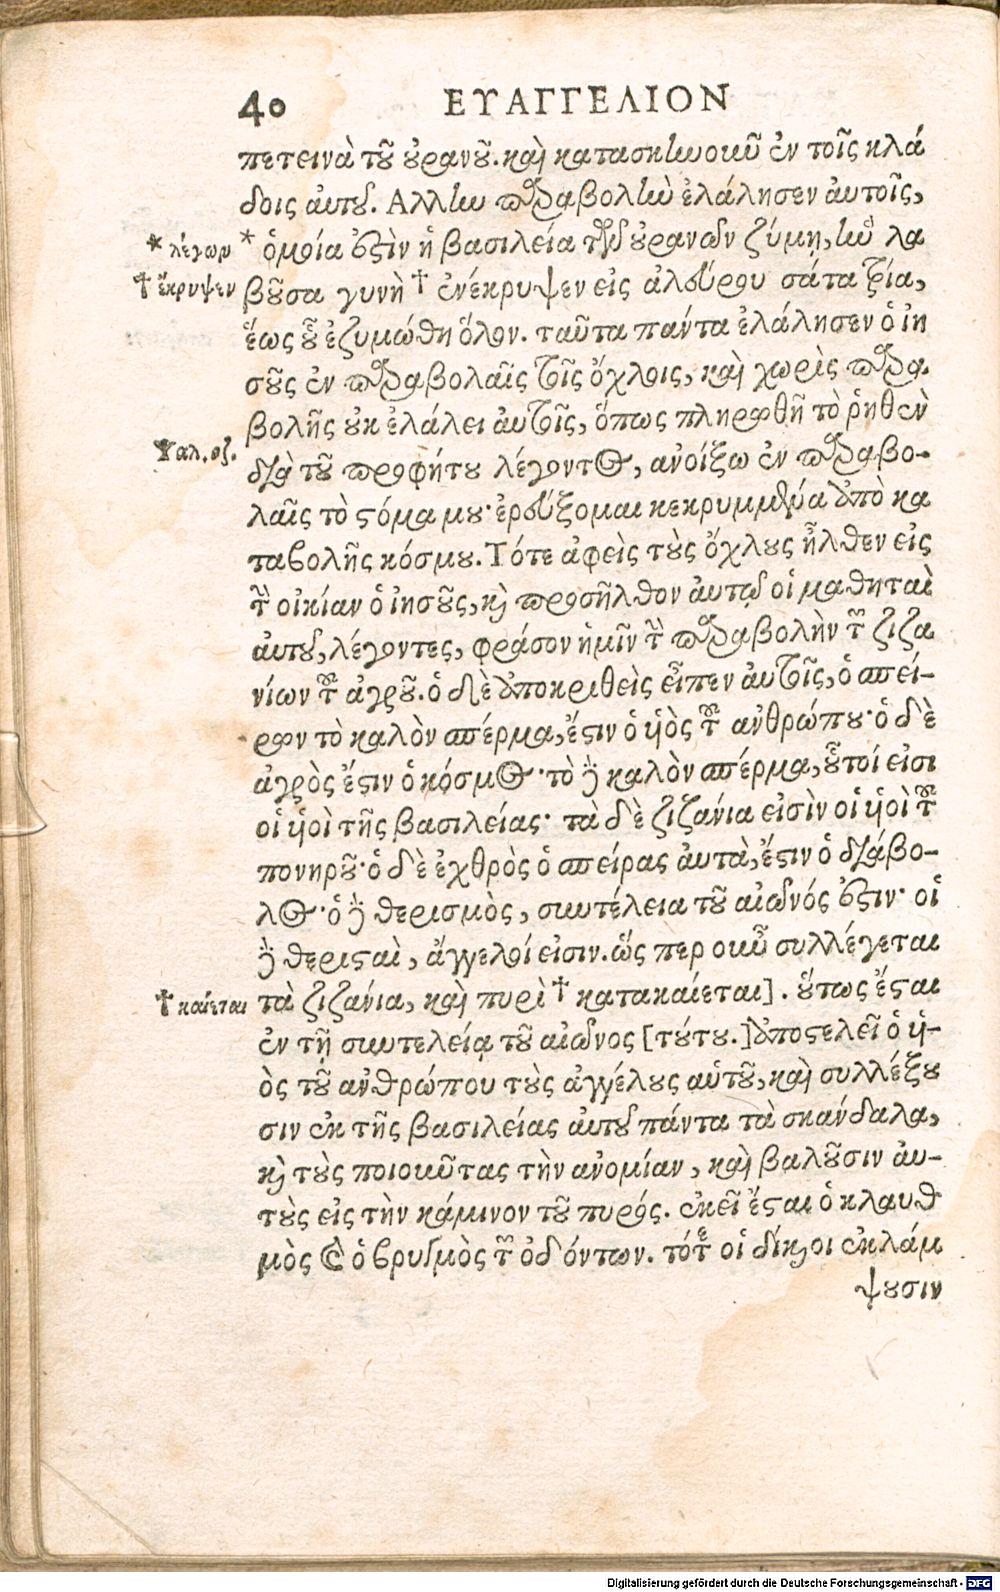 40 ΕΥΑΓΓΕΛΙΟΝ
πετεινὰ τοῦ οὐρανοῦ. καὶ κατασκηνοῦν ἐν τοῖς κλά
δοις αὐτοῦ. Αλλην παραβολὴν ἐλάλησεν αὐτοῖς,
* λέγων
* ὁμοία ἐστὶν ἡ βασιλεία τῶν οὐρανῶν ζύμῃ, ἣν λα
† ἔκρυψεν
βοῦσα γυνὴ † ἐνέκρυψεν εἰς ἀλεύρου σάτα τρία,
ἕως οὗ ἐζυμώθη ὅλον. ταῦτα πάντα ἐλάλησεν ὁ ἰη
σοῦς ἐν παραβολαῖς τοῖς ὄχλοις, καὶ χωρὶς παρα
βολῆς οὐκ ἐλάλει αὐτοῖς, ὅπως πληρωθῇ τὸ ῥηθὲν
Ψαλ. οζ.
διὰ τοῦ προφήτου λέγοντος, ἀνοίξω ἐν παραβο-
λαῖς τὸ στόμα μου· ἐρεύξομαι κεκρυμμένα ἀπὸ κα
ταβολῆς κόσμου. Τότε ἀφεὶς τοὺς ὄχλους ἦλθεν εἰς
τὴν οἰκίαν ὁ ἰησοῦς, καὶ προσῆλθον αὐτῷ οἱ μαθηταὶ
αὐτοῦ, λέγοντες, φράσον ἡμῖν τὴν παραβολὴν τῶν ζιζα
νίων τοῦ ἀγροῦ. ὁ δὲ ἀποκριθεὶς εἶπεν αὐτοῖς, ὁ σπεί-
ρων τὸ καλὸν σπέρμα, ἔστιν ὁ υἱὸς τοῦ ἀνθρώπου· ὁ δὲ
ἀγρὸς ἔστιν ὁ κόσμος· τὸ δὲ καλὸν σπέρμα, οὗτοί εἰσι
οἱ υἱοὶ τῆς βασιλείας· τὰ δὲ ζιζάνια εἰσὶν οἱ υἱοὶ τοῦ
πονηροῦ· ὁ δὲ ἐχθρὸς ὁ σπείρας αὐτὰ, ἔστιν ὁ διάβο-
λος· ὁ δὲ θερισμὸς, συντέλεια τοῦ αἰῶνός ἐστιν· οἱ
δὲ θερισταὶ, ἄγγελοί εἰσιν. ὥς περ οὖν συλλέγεται
† καίεται
τὰ ζιζάνια, καὶ πυρὶ † κατακαίεται]. οὕτως ἔσται
ἐν τῇ συντελείᾳ τοῦ αἰῶνος [τούτου.] ἀποστελεῖ ὁ υἱ-
ὸς τοῦ ἀνθρώπου τοὺς ἀγγέλους αὑτοῦ, καὶ συλλέξου
σιν ἐκ τῆς βασιλείας αὐτοῦ πάντα τὰ σκάνδαλα,
καὶ τοὺς ποιοῦντας τὴν ἀνομίαν, καὶ βαλοῦσιν αὐ-
τοὺς εἰς τὴν κάμινον τοῦ πυρός. ἐκεῖ ἔσται ὁ κλαυθ
μὸς καὶ ὁ βρυγμὸς τῶν ὀδόντων. τότε οἱ δίκαιοι ἐκλάμ
ψουσιν
Digitalisierung gefördert durch die Deutsche Forschungsgemeinschaft - DFG